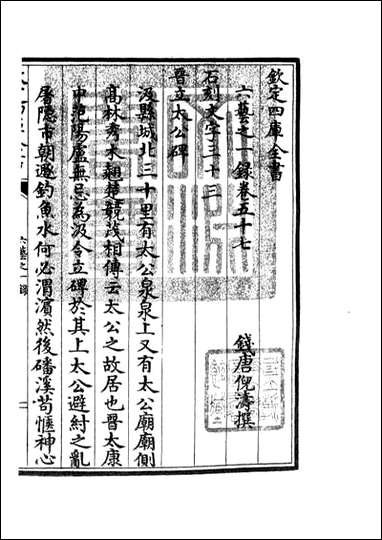 欽定四庫全書
六藝之一錄卷五十七
錢唐倪濤撰
石刻文字三十三
晉立太公碑
汲縣城北三十里有太公泉泉上又有太公廟廟側
髙林秀木翹楚競茂相傳云太公之故居也晉太康
中范陽盧無忌為汲令立碑於其上太公避紂之亂
屠隠市朝遯釣魚水何必渭濵然後磻溪苟愜神心
六藝之一録